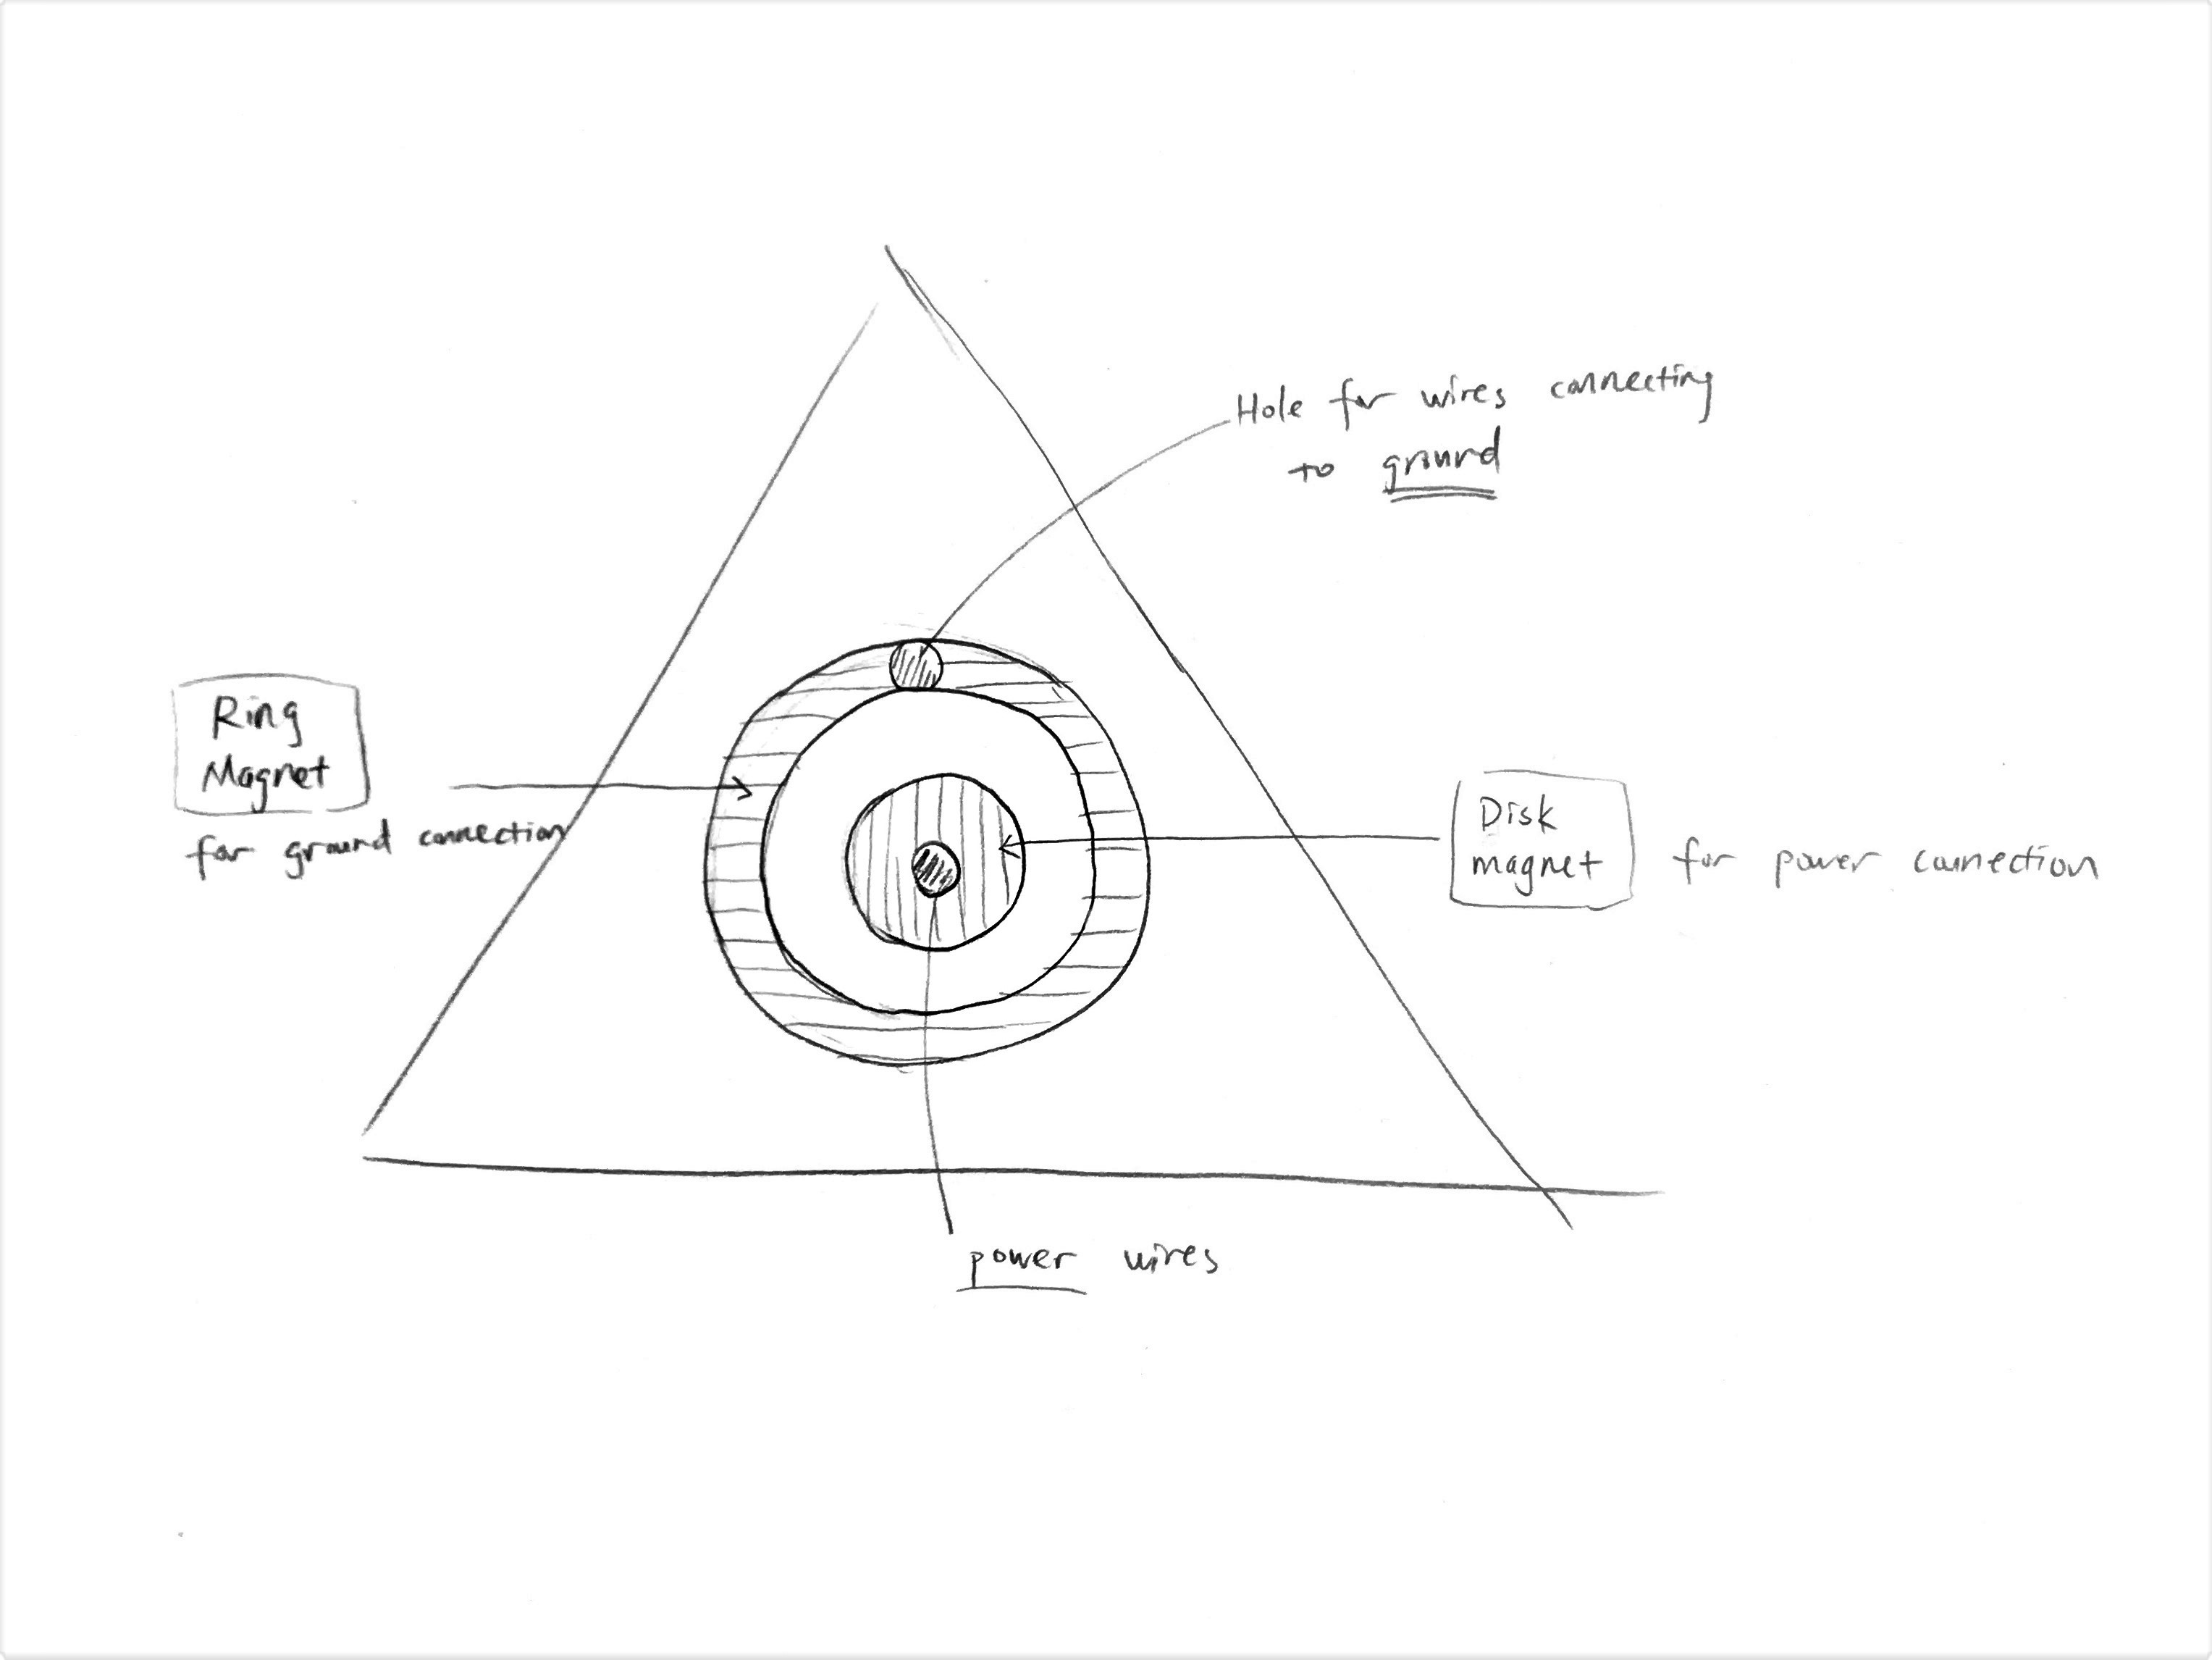 Hole for wires connecting
to ground
Ring
Magnet
for ground connection
Disk
magnet
for power connection
power wires